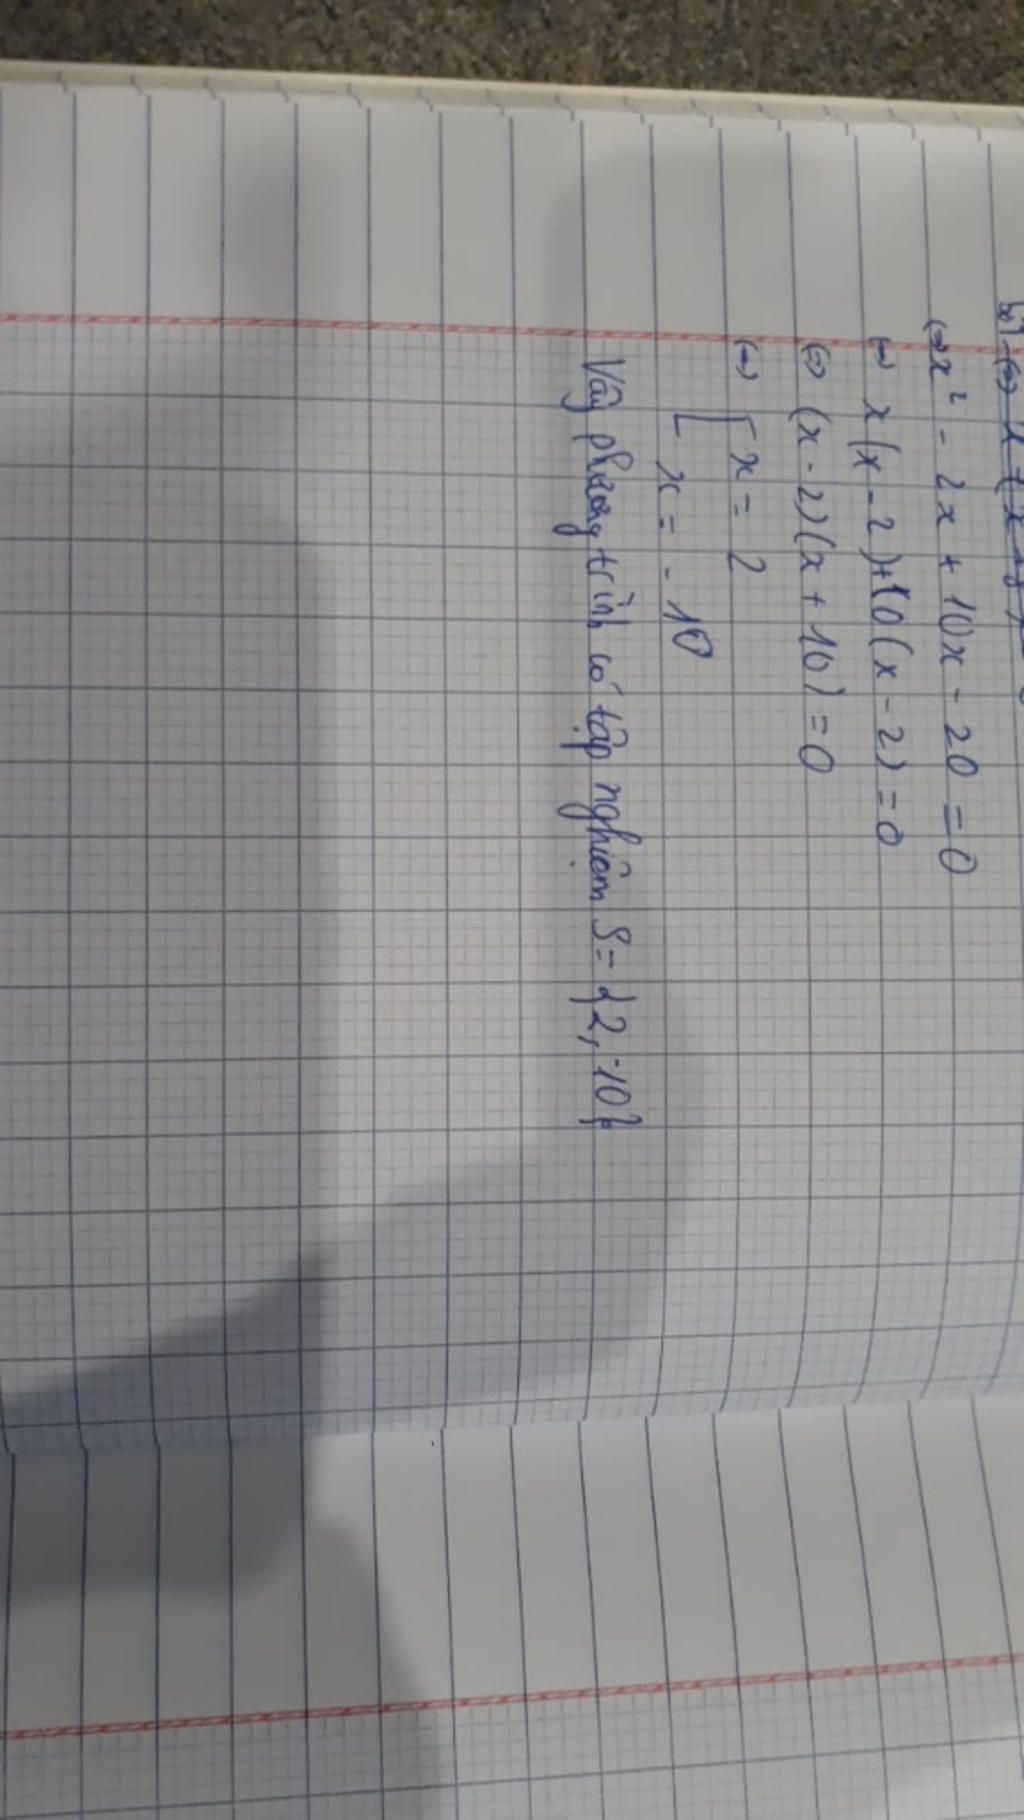 (=) x² - 2x + 10x - 20 = 0
(=) x(x - 2) + 10(x - 2) = 0
(=) (x - 2)(x + 10) = 0
(=) [ x = 2
[ x = - 10
Vậy phương trình có tập nghiệm S = {2, -10}